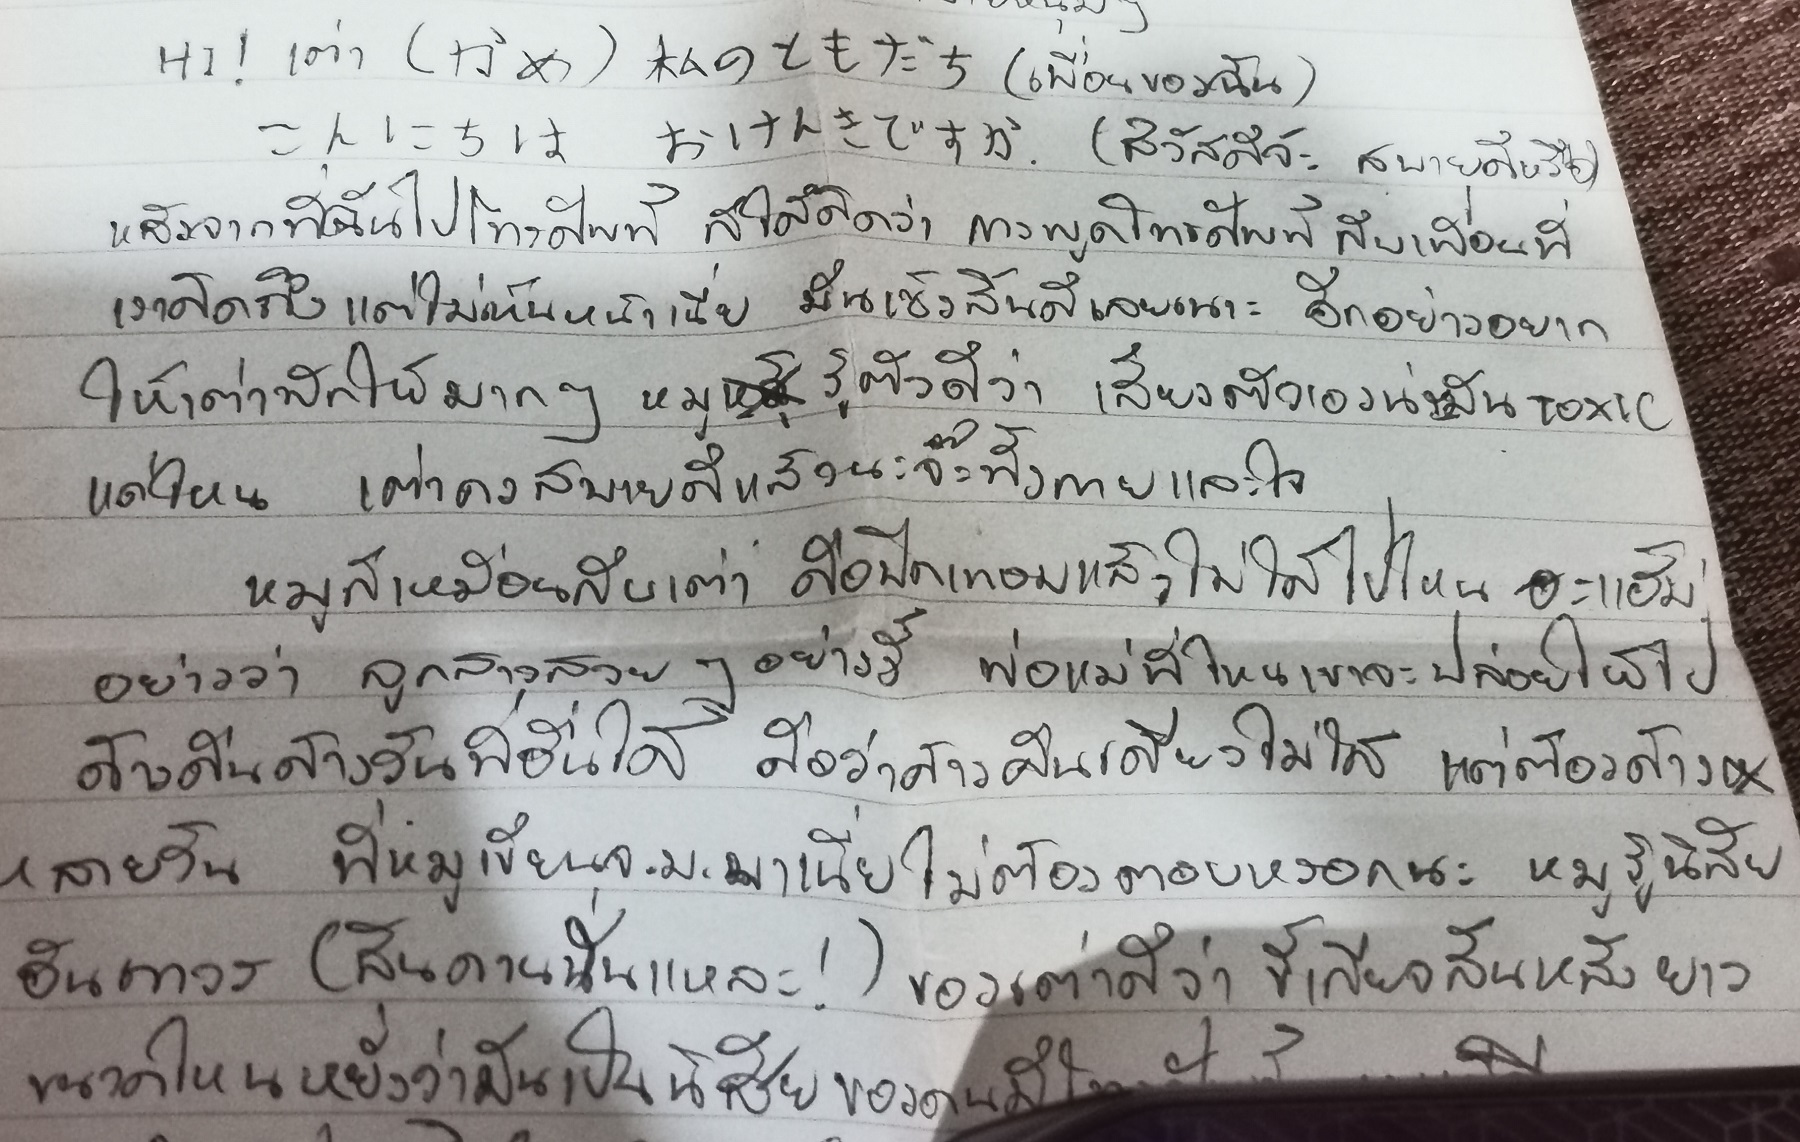 HI! เต่า ( ) 私のともだち (เพื่อนของฉัน)
こんにちは おけんきですが. (สวัสดีจ้ะ สบายดีหรือ)
หลังจากที่ฉันไปโทรศัพท์ ก็ได้คิดว่า การพูดโทรศัพท์กับเพื่อนที่
เราคิดถึงแต่ไม่เห็นหน้าเนี่ย มันเซ็งสิ้นดีเลยเนาะ อีกอย่างอยาก
ให้เต่าพักให้มากๆ หมู รู้ตัวดีว่า เสียงตัวเองน่ะมัน TOXIC
แค่ไหน เต่าคงสบายดีแล้วนะจ๊ะทั้งกายและใจ
หมูก็เหมือนกับเต่า คือปิดเทอมแล้วไม่ได้ไปไหน อะแฮ้ม
อย่างว่า ลูกสาวสวยๆ อย่างนี้ พ่อแม่ที่ไหนเขาจะปล่อยให้ไป
ค้างคืนค้างวันที่อื่นได้ คือว่าค้างคืนเดียวไม่ได้ แต่ต้องค้าง
หลายวัน ที่หมูเขียนจ.ม.มาเนี่ยไม่ต้องตอบหรอกนะ หมูรู้นิสัย
อันถาวร (สันดานนั่นแหละ!) ของเต่าดีว่า ขี้เกียจสันหลังยาว
ขนาดไหนหยั่งว่ามันเป็นนิสัยของคนมี